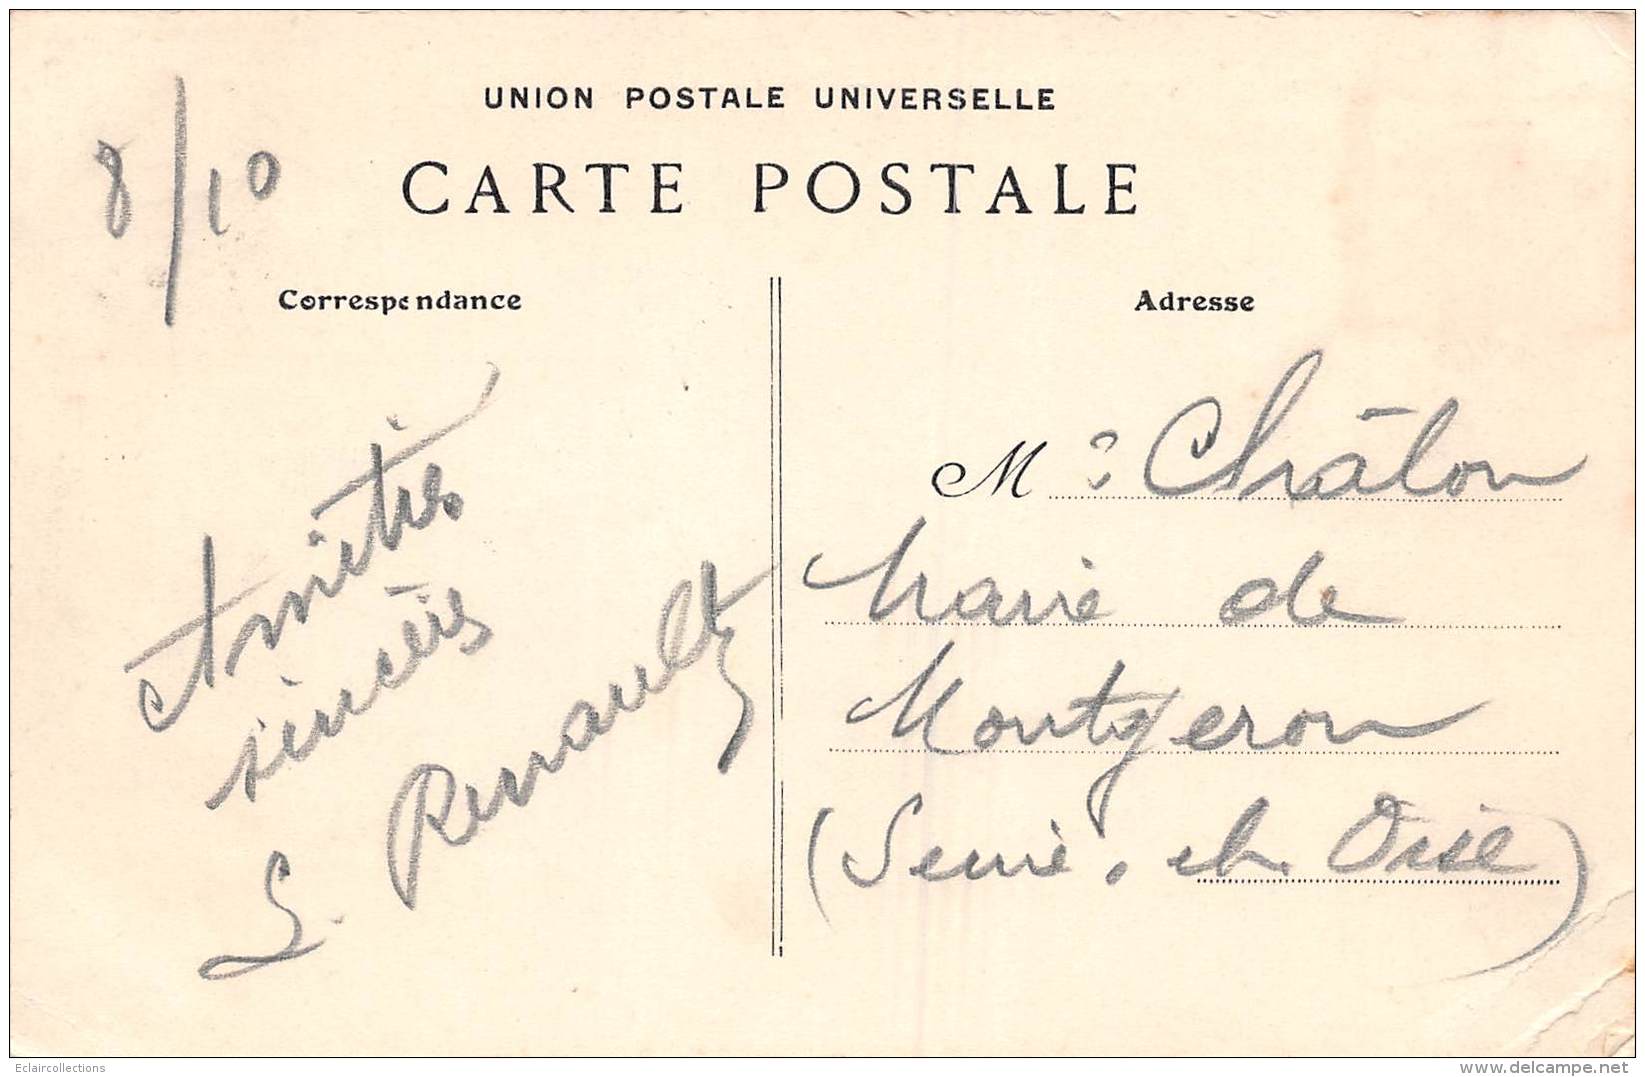 UNION POSTALE UNIVERSELLE
CARTE POSTALE
8/10
Correspondance
Amitiés
sincères
L. Renault
Adresse
M Châlon
Maire de
Montgeron
(Seine, et Oise)
Eclaircollections
delcampe.net